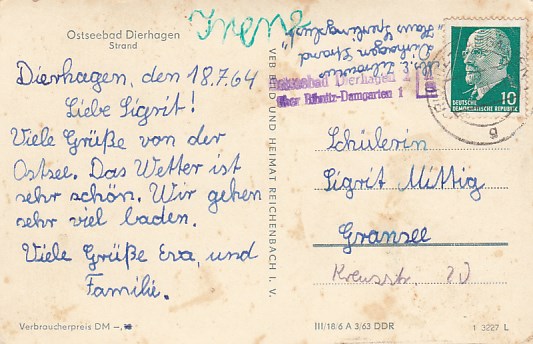 Ostseebad Dierhagen
Strand
Irene
Dierhagen, den 18.7.64
Liebe Sigrit!
Viele Grüße von der
Ostsee. Das Wetter ist
sehr schön. Wir gehen
sehr viel baden.
Viele Grüße Eva, und
Familie.
Verbraucherpreis DM –,
VEB BILD UND HEIMAT REICHENBACH I. V.
Dierhagen Strand
"Haus Sperlingslust"
Ostseebad Dierhagen
über Ribnitz-Damgarten 1
DEUTSCHE
DEMOKRATISCHE REPUBLIK
10
g
Schülerin
Sigrit Mittig
Gransee
Kreusstr. 20
III/18/6 A 3/63 DDR
1 3227 L